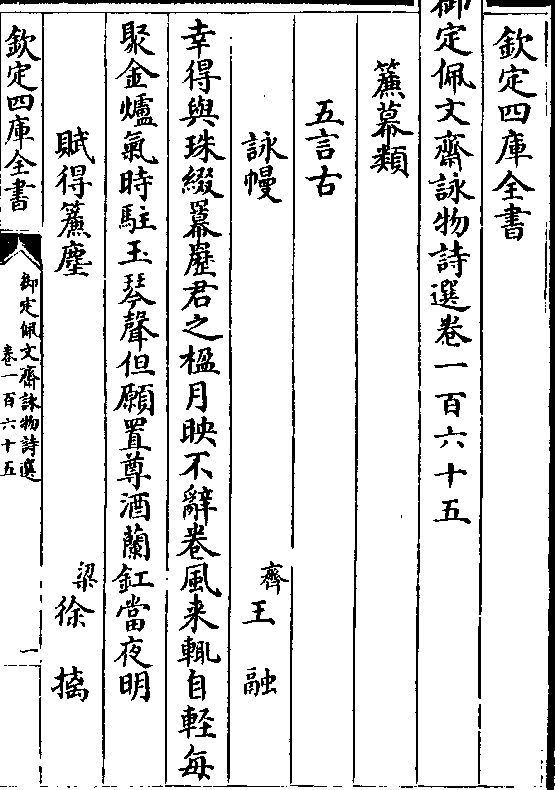 欽定四庫全書
御定佩文齋詠物詩選卷一百六十五
簾幕類
五言古
詠幔 齊王融
幸得與珠綴羃歷君之楹月映不辭卷風来輒自軽每
聚金爐氣時駐玉琴聲但願置尊酒蘭釭當夜明
賦得簾塵 梁徐摛
欽定四庫全書
御定佩文齋詠物詩選
卷一百六十五
一